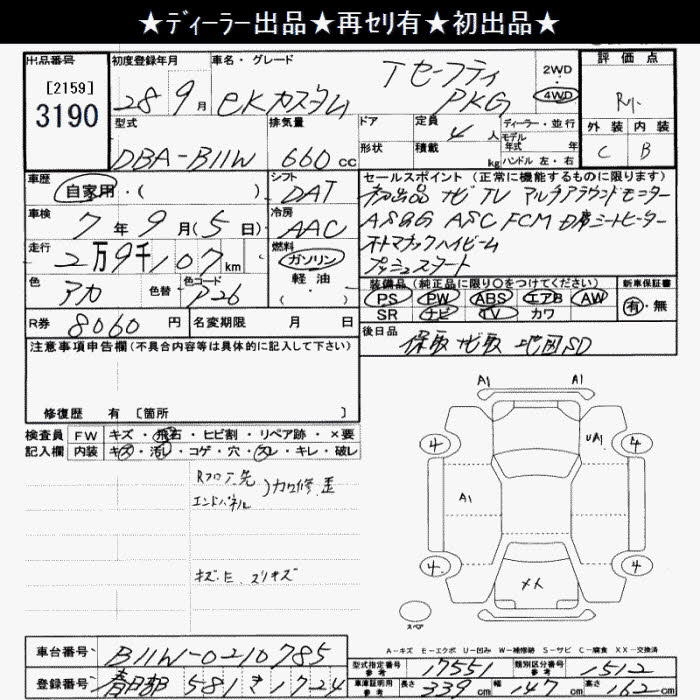 ★ディーラー出品★再セリ有★初出品★
出品番号 初度登録年月 車名・グレード 評価点
[2159] 3190
28年9月 eKカスタム TセーフティPKG 2WD 4WD R1
型式 排気量 ドア 定員 4人 ディーラー・並行 外装 内装
DBA-B11W 660cc 形状 積載 kg モデル年式 年 C B
ハンドル 左・右
車歴 自家用・( ) シフト DAT セールスポイント (正常に機能するものに限ります)
初出品 ナビ TV マルチアラウンドモニター
車検 7年9月(5日) 冷房 AAC
ASG ASC FCM D席シートヒーター
オートマチックハイビーム
プッシュスタート
走行 2万9千107km 燃料 ガソリン・軽油・( )
色 アカ 色替 色コード P26
装備品 (純正品に限り○をつけてください) 新車保証書
PS PW ABS エアB AW 有・無
SR ナビ TV カワ
R券 8060円 名変期限 月 日
後日品 保取 ナビ取 地図SD
注意事項申告欄 (不具合内容等は具体的に記入して下さい)
修復歴 有 [箇所 ]
検査員記入欄 FW キズ・飛石・ヒビ割・リペア跡・×要
内装 キズ・汚レ・コゲ・穴・スレ・キレ・破レ
Rフロア先
エンドパネル )加修、歪
キズ・E、スリキズ
A1 A1
4 4
UA1
A1
4 4
メ人
スペア
A-キズ E-エクボ U-凹み W-補修跡 S-サビ C-腐食 XX-交換済
車台番号 B11W-0210785
登録番号 春日部 581 き 1724
型式指定番号 参考 17551 類別区分番号 参考 1512
車庫証明用 参考 長さ 339cm 幅 147cm 高さ 162cm